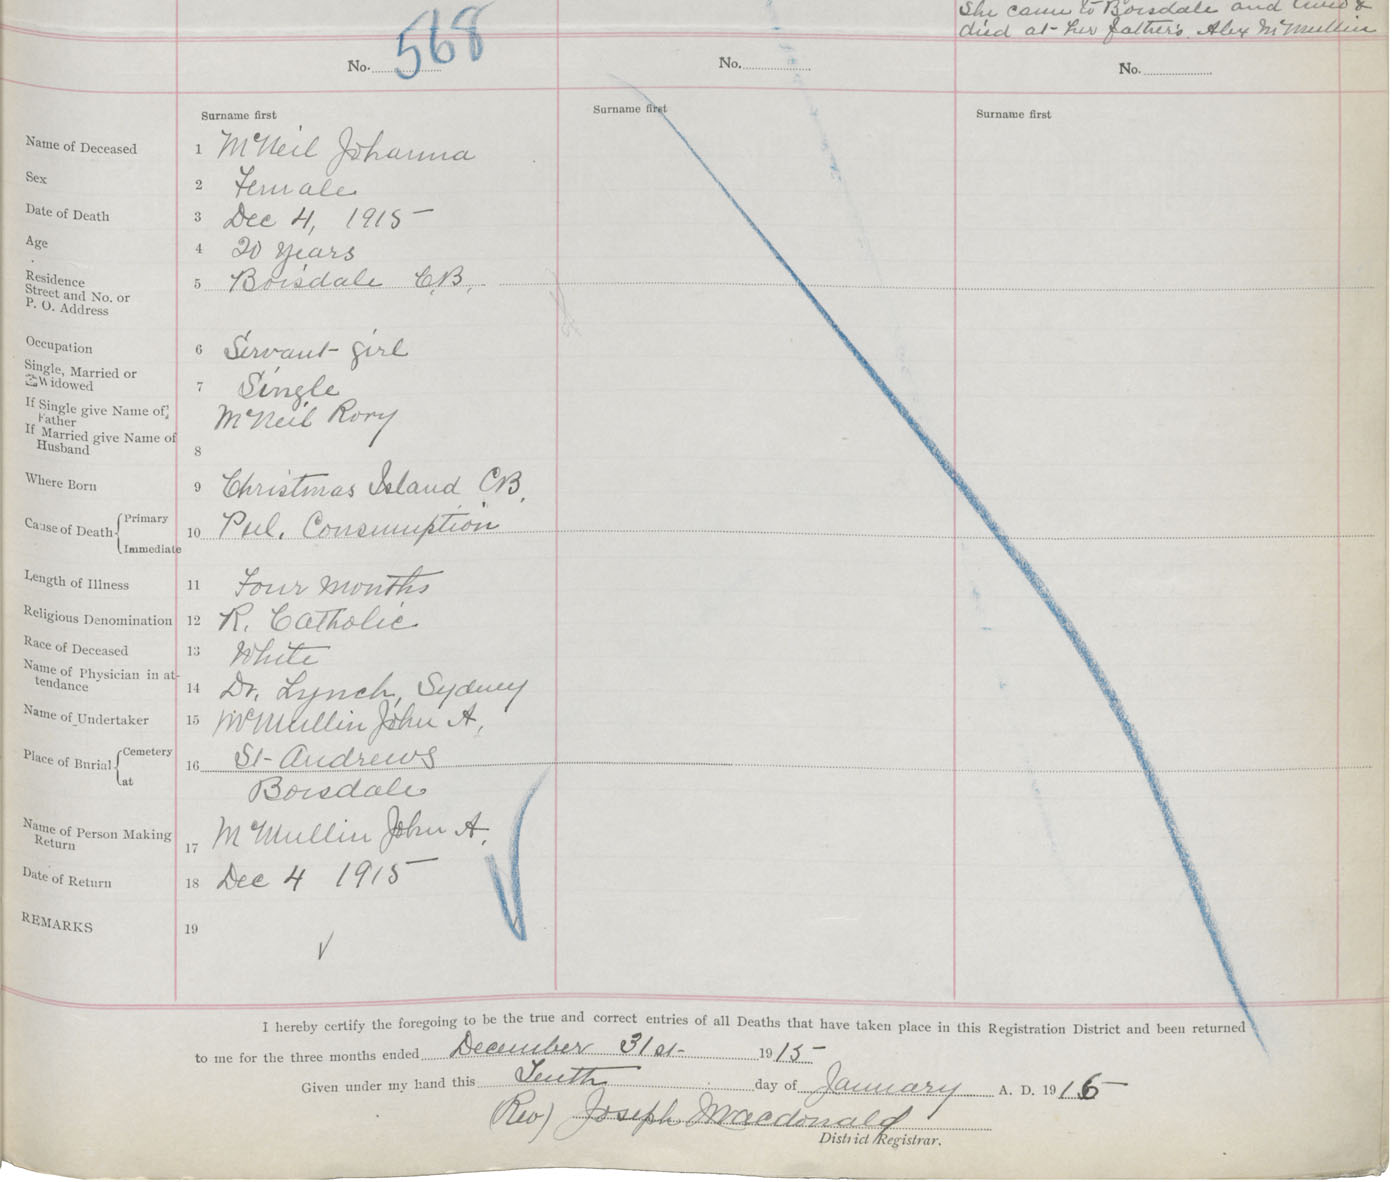 She came to Boisdale and lived &
died at her father's Alex McMullin
No. 568
No.
No.
Surname first
Surname first
Surname first
Name of Deceased 1 McNeil Johanna
Sex 2 Female
Date of Death 3 Dec 4, 1915
Age 4 20 years
Residence
Street and No. or
P. O. Address
5 Boisdale C.B.
Occupation 6 Servant girl
Single, Married or
Widowed
7 Single
If Single give Name of
Father
McNeil Rory
If Married give Name of
Husband
8
Where Born 9 Christmas Island CB.
Cause of Death { Primary
Immediate
10 Pul. Consumption
Length of Illness 11 Four months
Religious Denomination 12 R. Catholic
Race of Deceased 13 White
Name of Physician in at-
tendance
14 Dr. Lynch, Sydney
Name of Undertaker 15 McMullin John A.
Place of Burial { Cemetery
at
16 St Andrews
Boisdale
Name of Person Making
Return
17 McMullin John A.
Date of Return 18 Dec 4 1915
REMARKS 19
I hereby certify the foregoing to be the true and correct entries of all Deaths that have taken place in this Registration District and been returned
to me for the three months ended December 31st 1915
Given under my hand this Tenth day of January A. D. 1916
(Rev) Joseph Macdonald
District Registrar.